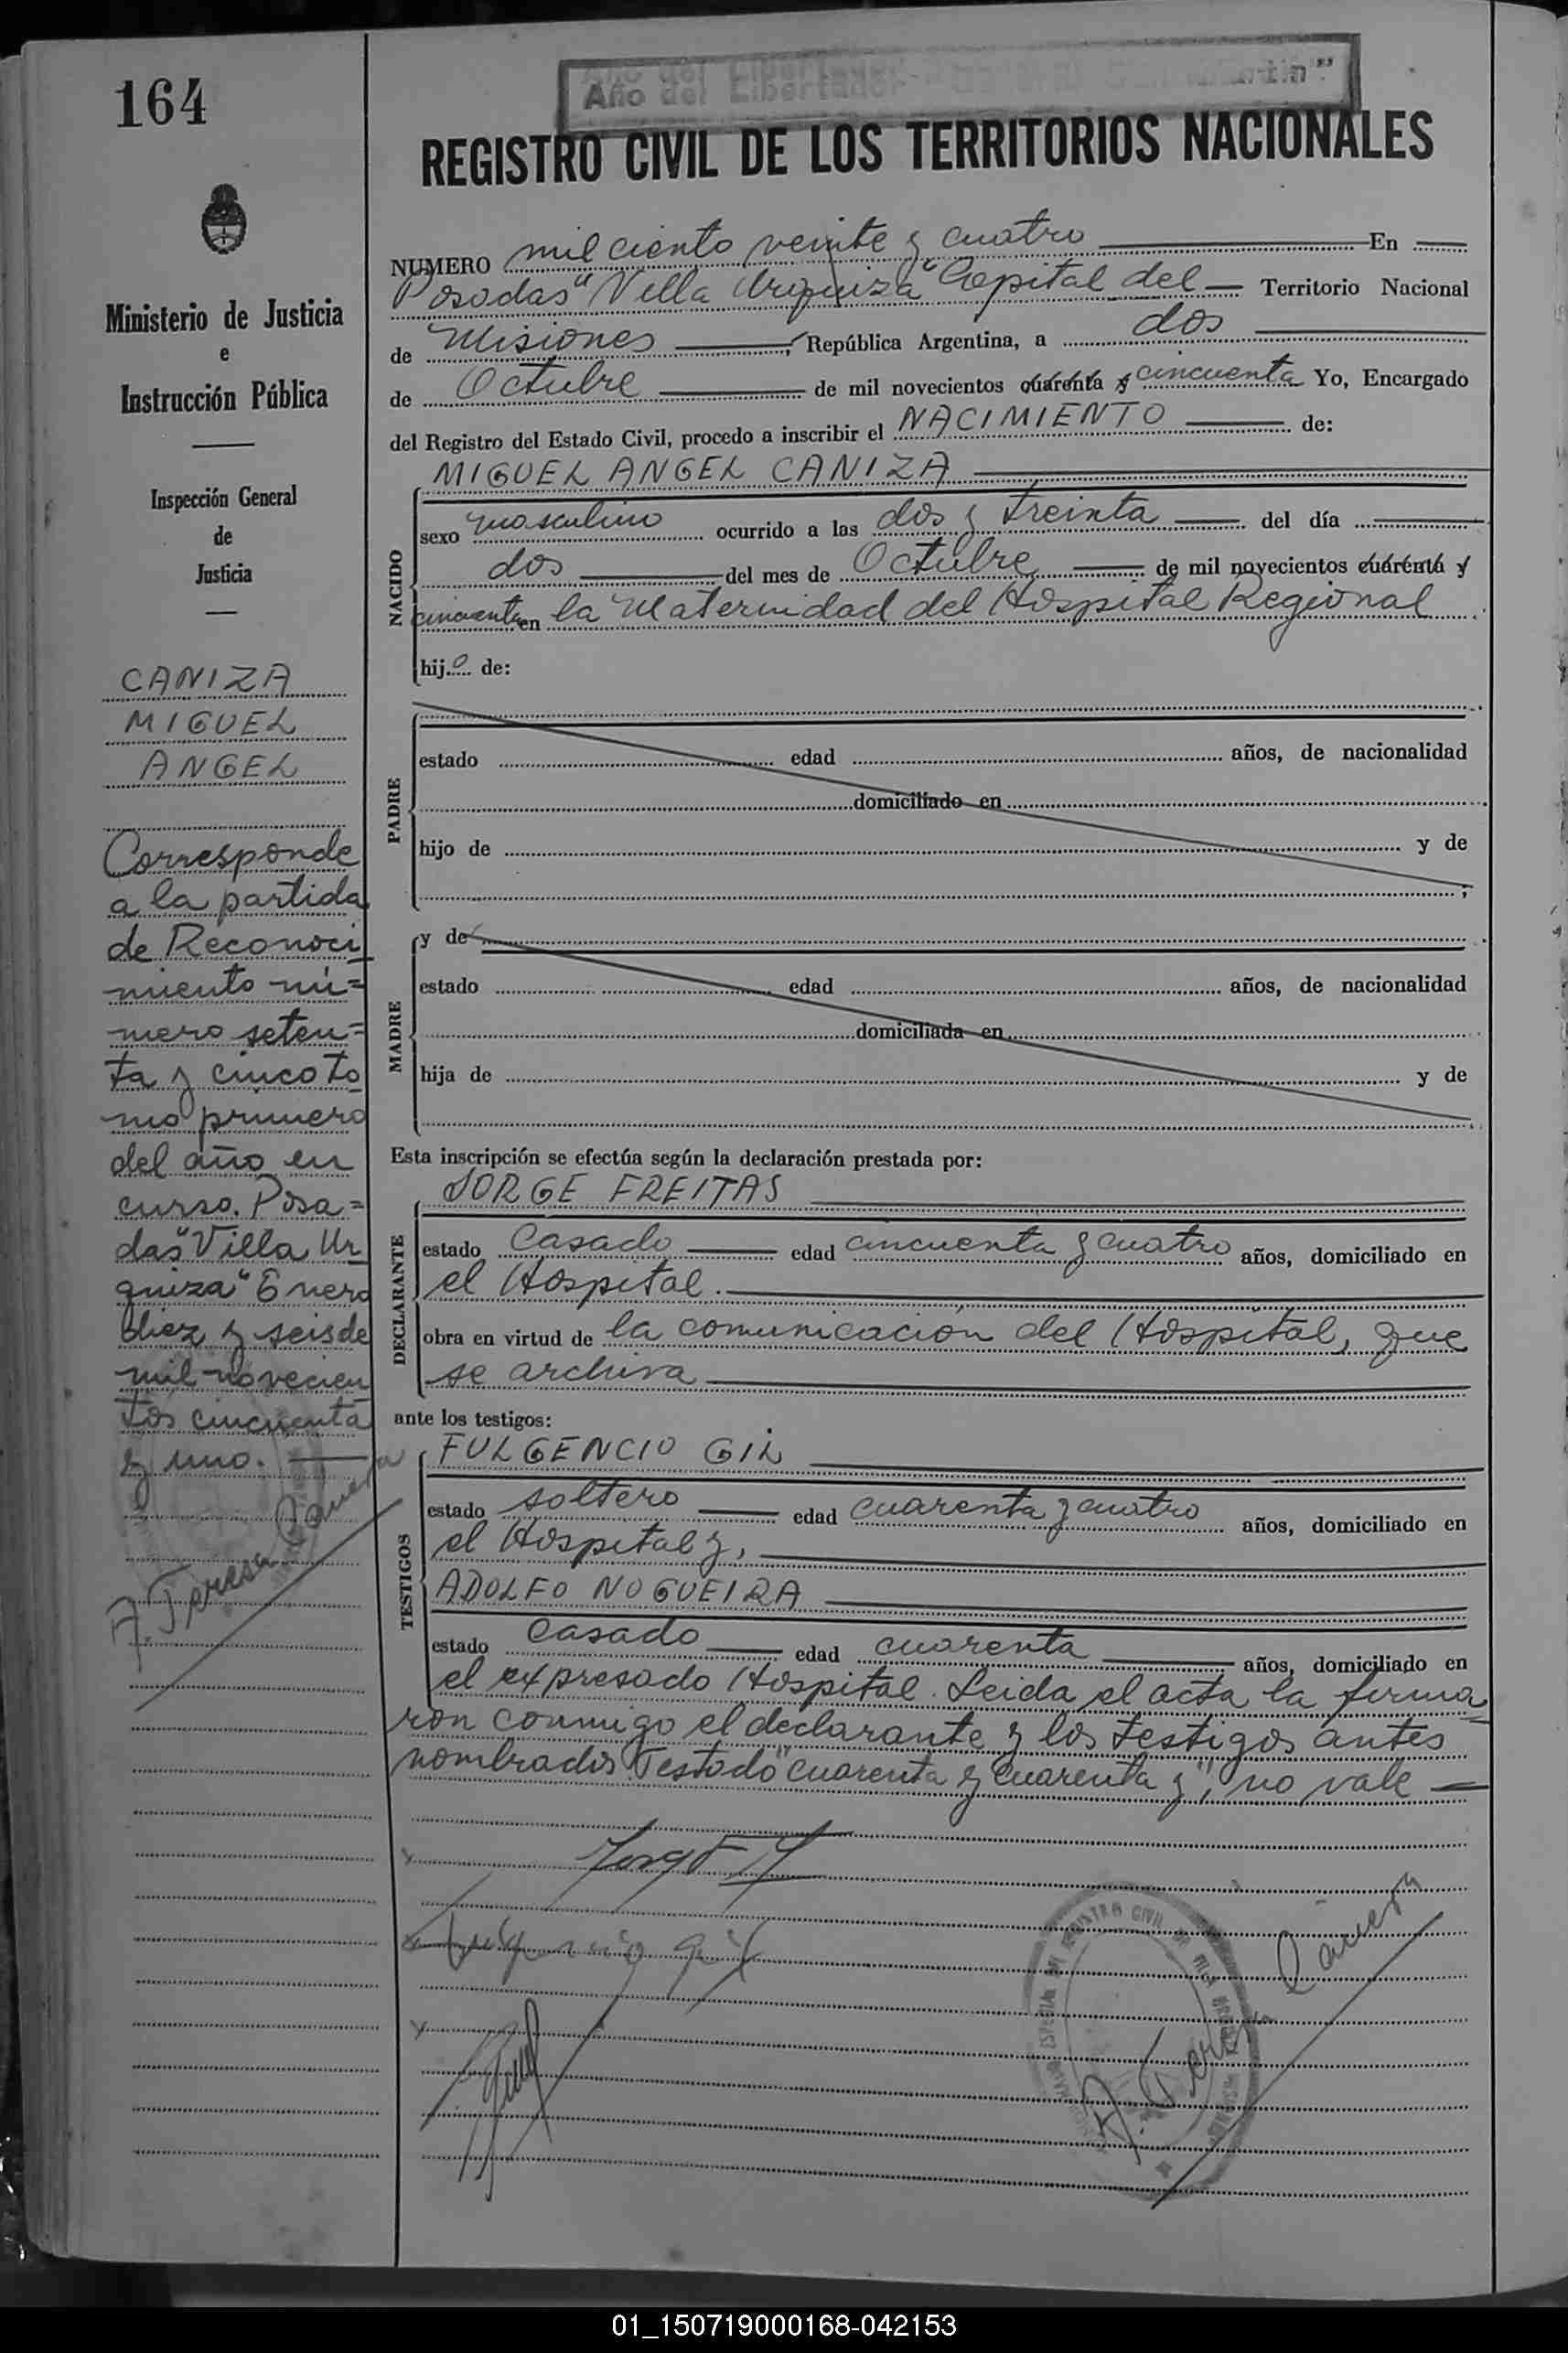 164
Año del Libertador
REGISTRO CIVIL DE LOS TERRITORIOS NACIONALES
Ministerio de Justicia
e
Instrucción Pública
Inspección General
de
Justicia
CANIZA
MIGUEL
ANGEL
Corresponde
a la partida
de Reconoci
miento nú=
mero seten=
ta y cinco to
mo primero
del año en
curso. Posa=
das "Villa Ur
quiza" Enero
diez y seis de
mil novecien
tos cincuenta
y uno.
A. Teresa
NUMERO mil ciento veinte y cuatro En
Posadas "Villa Urquiza" Capital del Territorio Nacional
de Misiones, República Argentina, a dos
de Octubre de mil novecientos cuarenta y cincuenta Yo, Encargado
del Registro del Estado Civil, procedo a inscribir el NACIMIENTO de:
NACIDO
MIGUEL ANGEL CANIZA
sexo masculino ocurrido a las dos y treinta del día
dos del mes de Octubre de mil novecientos cuarenta y
cincuenta en la Maternidad del Hospital Regional
hijo de:
PADRE
estado edad años, de nacionalidad
domiciliado en
hijo de y de
;
MADRE
y de
estado edad años, de nacionalidad
domiciliada en
hija de y de
Esta inscripción se efectúa según la declaración prestada por:
DECLARANTE
JORGE FREITAS
estado Casado edad cincuenta y cuatro años, domiciliado en
el Hospital.
obra en virtud de la comunicación del Hospital, que
se archiva
ante los testigos:
TESTIGOS
FULGENCIO GIL
estado soltero edad cuarenta y cuatro años, domiciliado en
el Hospital y,
ADOLFO NOGUEIRA
estado Casado edad cuarenta años, domiciliado en
el expresado Hospital. Leida el acta la firma
ron conmigo el declarante y los testigos antes
nombrados Testado "cuarenta y cuarenta y", no vale
Fulgencio gil
REGISTRO CIVIL
A. Teresa
01_150719000168-042153